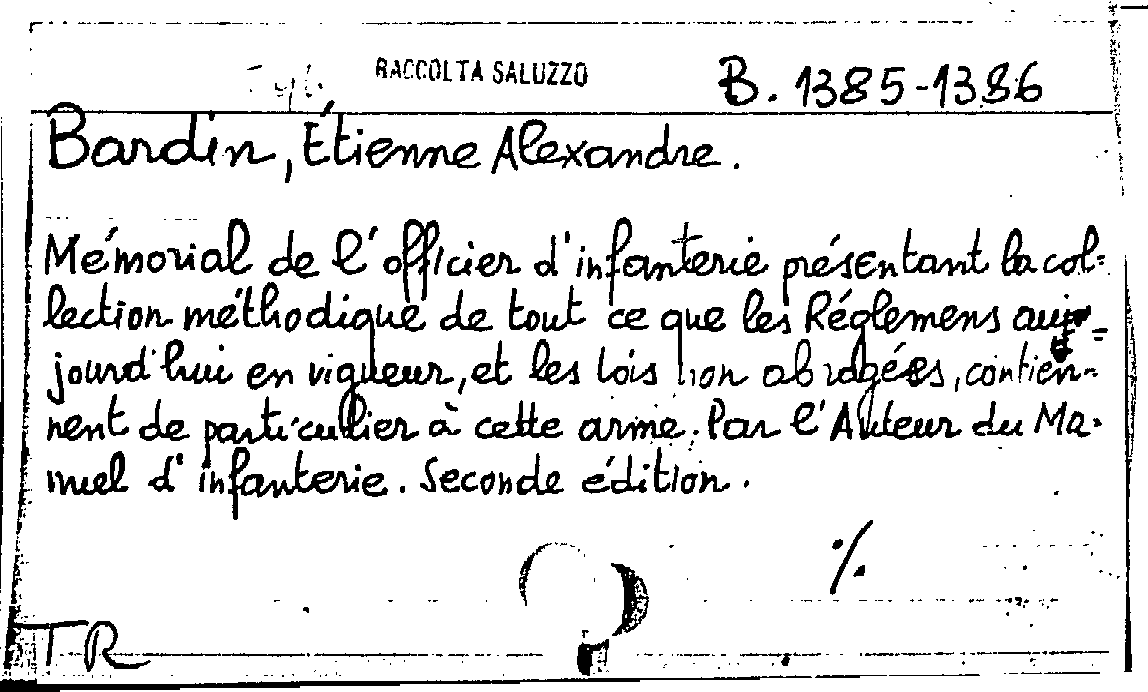 RACCOLTA SALUZZO B. 1385-1386
Bardin, Étienne Alexandre.
Mémorial de l'officier d'infanterie présentant la col=
lection méthodique de tout ce que les Réglemens auj=
jourd'hui en vigueur, et les lois non abrogées, contien-
nent de particulier à cette arme. Par l'Auteur du Ma-
nuel d'infanterie. Seconde édition.
%
TR